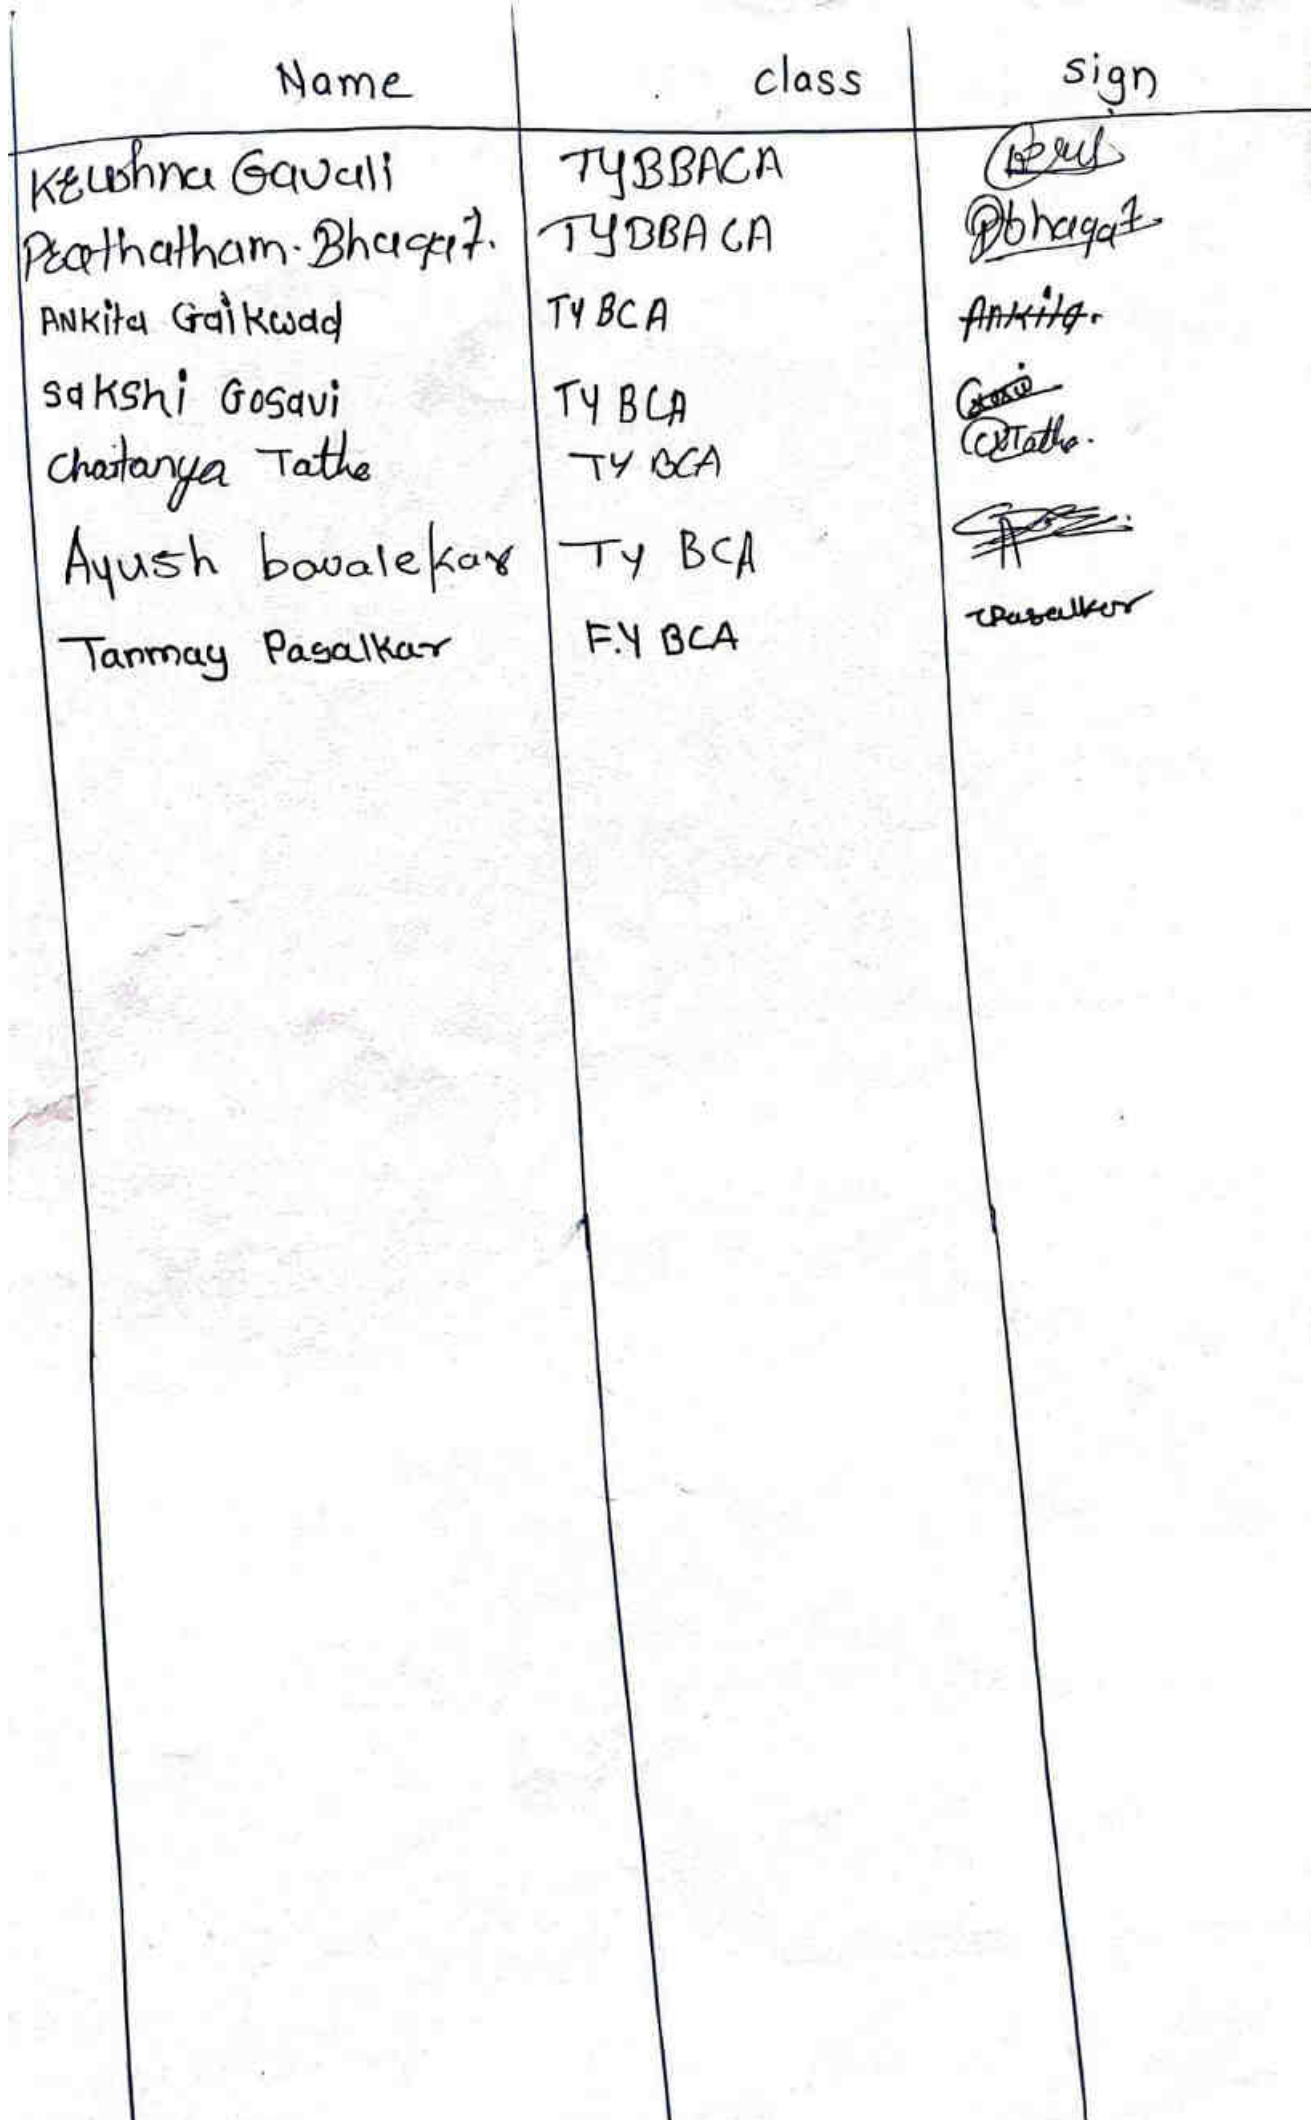 Name class sign
Krushna Gavali TYBBACA
Prathatham. Bhagat. TYBBACA Pbhagat.
ANKita Gaikwad TY BCA Ankita.
sakshi Gosavi TY BCA
Chaitanya Tathe TY BCA CTathe.
Ayush bavalekar Ty BCA
Tanmay Pasalkar F.Y BCA TPasalkar